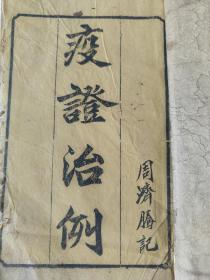 疫證治例
周濟勝記